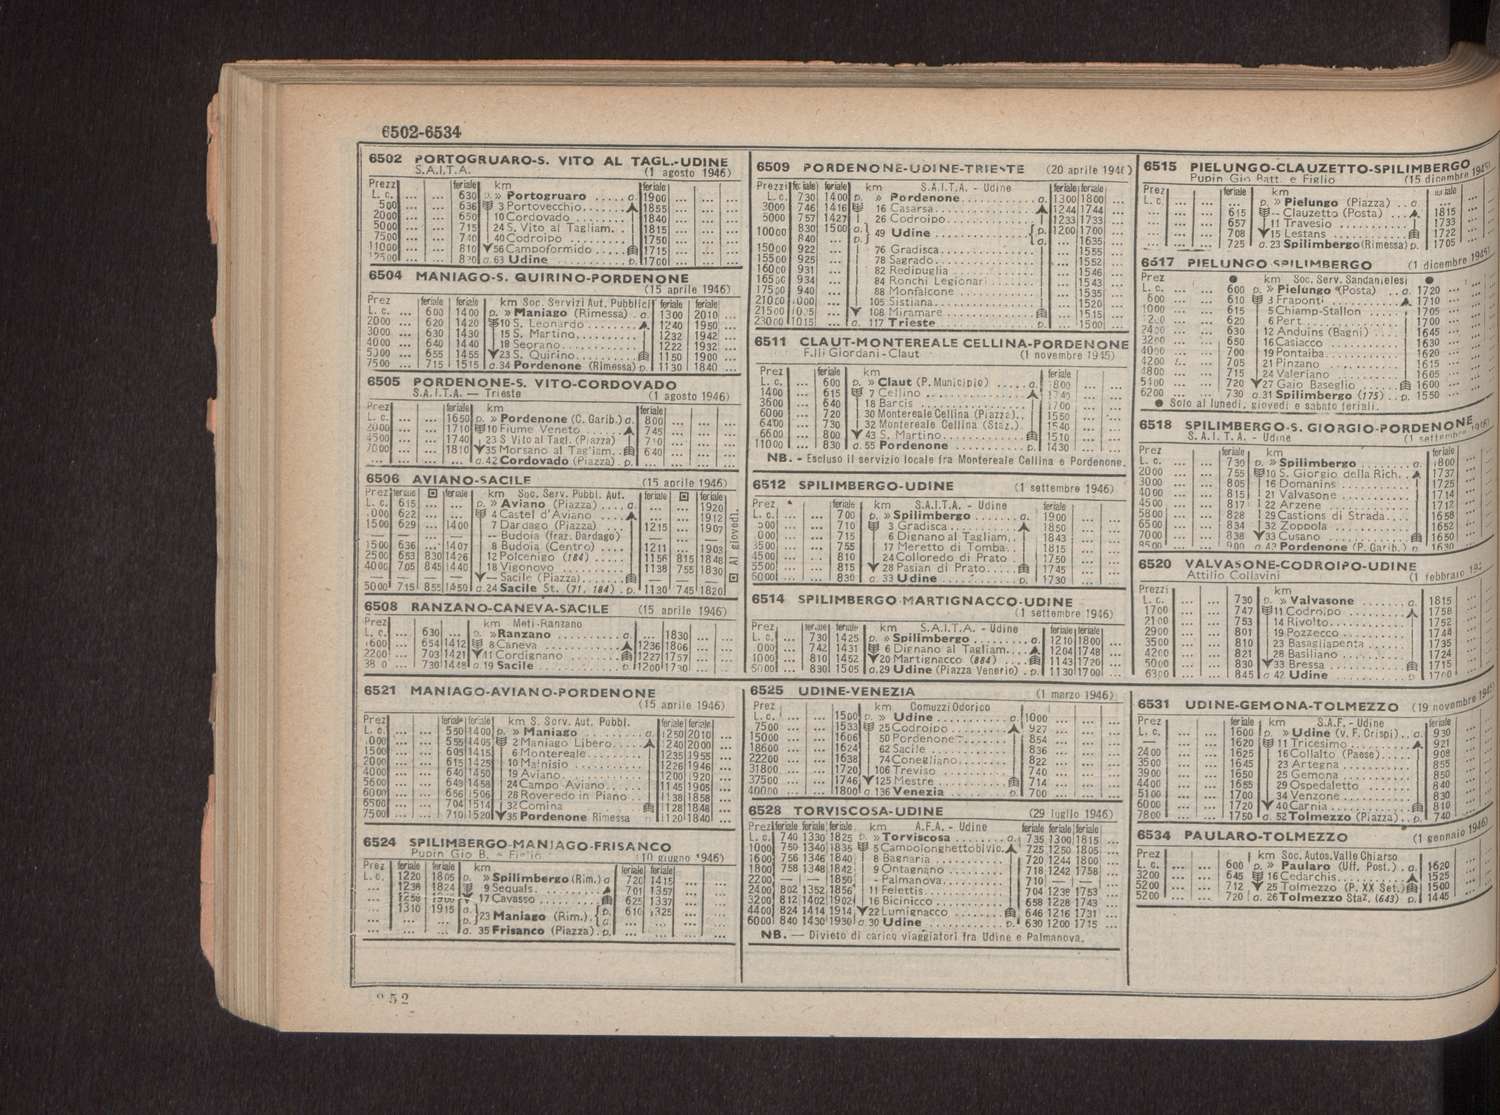 6502-6534
6502 PORTOGRUARO-S. VITO AL TAGL.-UDINE
S.A.I.T.A. (1 agosto 1946)
Prezzi feriale km feriale
L. c. ... ... 630 p. » Portogruaro ..... a. 1900 ... ... ...
500 ... ... 636 3 Portovecchio 1855 ... ... ...
2000 ... ... 650 10 Cordovado 1840 ... ... ...
5000 ... ... 715 24 S. Vito al Tagliam. . 1815 ... ... ...
7500 ... ... 740 40 Codroipo 1750 ... ... ...
11000 ... ... 810 56 Campoformido 1715 ... ... ...
12500 ... ... 830 a. 63 Udine p. 1700 ... ... ...
6504 MANIAGO-S. QUIRINO-PORDENONE
(15 aprile 1946)
Prez feriale feriale km Soc. Servizi Aut. Pubblici feriale feriale
L. c. ... 600 1400 p. » Maniago (Rimessa) . a. 1300 2010 ... ...
2000 ... 620 1420 10 S. Leonardo 1240 1950 ... ...
3000 ... 630 1430 15 S. Martino 1232 1942 ... ...
4000 ... 640 1440 18 Segrano 1222 1932 ... ...
5000 ... 655 1455 23 S. Quirino 1150 1900 ... ...
7500 ... 715 1515 a. 34 Pordenone (Rimessa) p. 1130 1840 ... ...
6505 PORDENONE-S. VITO-CORDOVADO
S.A.I.T.A. — Trieste (1 agosto 1946)
Prez feriale km feriale
L. c. ... ... 1650 p. » Pordenone (C. Garib.) a. 800 ... ... ...
2000 ... ... 1710 10 Fiume Veneto 745 ... ... ...
4500 ... ... 1740 23 S Vito al Tagl. (Piazza) 710 ... ... ...
7000 ... ... 1810 35 Morsano al Tagliam. 640 ... ... ...
... ... ... ... a. 42 Cordovado (Piazza) . p. ... ... ... ...
6506 AVIANO-SACILE (15 aprile 1946)
Prez feriale feriale km Soc. Serv. Pubbl. Aut. feriale feriale
L. c. 615 ... ... p. » Aviano (Piazza) .... a. ... ... 1920
000 622 ... ... 4 Castel d'Aviano ... ... 1912
1500 629 ... 1400 7 Dardago (Piazza) 1215 ... 1907
— — ... — — Budoia (fraz. Dardago) — ... —
1500 636 ... 1407 8 Budoia (Centro) 1211 ... 1903
2500 653 830 1426 12 Polcenigo (184) 1156 815 1848
4000 705 845 1440 18 Vigonovo 1138 755 1830
— — — — — Sacile (Piazza) — — —
5000 715 855 1450 a. 24 Sacile St. (71, 184) . p. 1130 745 1820
Al giovedì.
6508 RANZANO-CANEVA-SACILE (15 aprile 1946)
Prez feriale feriale km Meti-Ranzano feriale feriale
L. c. ... 630 ... p. » Ranzano a. ... 1830 ... ...
1600 ... 654 1412 8 Caneva 1236 1806 ... ...
2200 ... 703 1421 11 Cordignano 1227 1757 ... ...
... 730 1448 a 19 Sacile p. 1200 1730 ... ...
6521 MANIAGO-AVIANO-PORDENONE
(15 aprile 1946)
Prez feriale feriale km S. Serv. Aut. Pubbl. feriale feriale
L. c. ... ... 550 1400 p. » Maniago a. 1250 2010 ...
000 ... ... 555 1405 2 Maniago Libero 1240 2000 ...
1500 ... ... 605 1415 6 Montereale 1235 1955 ...
2000 ... ... 615 1425 10 Malnisio 1226 1946 ...
4000 ... ... 640 1450 19 Aviano 1200 1920 ...
5600 ... ... 649 1458 24 Campo Aviano 1145 1905 ...
6000 ... ... 656 1506 28 Roveredo in Piano 1138 1858 ...
6500 ... ... 704 1514 32 Comina 1128 1848 ...
7500 ... ... 710 1520 35 Pordenone Rimessa 1120 1840 ...
6524 SPILIMBERGO-MANIAGO-FRISANCO
Pupin Gio B. - Figlio (10 giugno 1946)
Prez feriale feriale km feriale feriale
L. c. 1220 1805 p. » Spilimbergo (Rim.) a 720 1415 ... ...
... 1238 1824 9 Sequals 701 1357 ... ...
... 17 Cavasso 625 1337 ... ...
... 1310 1915 a. 23 Maniago (Rim.) p. 610 1325 ... ...
... a. 35 Frisanco (Piazza) . p. ... ... ... ...
6509 PORDENONE-UDINE-TRIESTE (20 aprile 1946)
Prezzi feriale feriale km S.A.I.T.A. - Udine feriale feriale
L. c. 730 1400 p. » Pordenone a. 1300 1800 ...
3000 746 1416 16 Casarsa 1244 1744 ...
5000 757 1427 26 Codroipo 1233 1733 ...
10000 830 1500 a. 49 Udine p. 1200 1700 ...
840 ... p. a. ... 1635 ...
15000 922 ... 76 Gradisca ... 1555 ...
15500 925 ... 78 Sagrado ... 1552 ...
16000 931 ... 82 Redipuglia ... 1546 ...
16500 934 ... 84 Ronchi Legionari ... 1543 ...
17500 940 ... 88 Monfalcone ... 1535 ...
21000 1000 ... 105 Sistiana ... 1520 ...
21500 1005 ... 108 Miramare ... 1515 ...
23000 1015 ... a. 117 Trieste p. ... 1500 ...
6511 CLAUT-MONTEREALE CELLINA-PORDENONE
F.lli Giordani-Claut (1 novembre 1945)
Prezz feriale km feriale
L. c. ... ... 600 p. » Claut (P. Municipio) ..... a. 1800 ... ...
1400 ... ... 615 7 Cellino 1745 ... ...
3600 ... ... 640 18 Barcis 1700 ... ...
6000 ... ... 720 30 Montereale Cellina (Piazza).. 1550 ... ...
6400 ... ... 730 32 Montereale Cellina (Staz.) 1540 ... ...
6600 ... ... 800 43 S. Martino 1510 ... ...
11000 ... ... 830 a. 55 Pordenone p. 1430 ... ...
NB. - Escluso il servizio locale fra Montereale Cellina e Pordenone.
6512 SPILIMBERGO-UDINE (1 settembre 1946)
Prezz feriale km S.A.I.T.A. - Udine feriale
L. c. ... ... 700 p. » Spilimbergo a. 1900 ... ... ...
500 ... ... 710 3 Gradisca 1850 ... ... ...
000 ... ... 715 6 Dignano al Tagliam.. 1843 ... ... ...
3500 ... ... 755 17 Meretto di Tomba 1815 ... ... ...
4500 ... ... 810 24 Colloredo di Prato 1750 ... ... ...
5500 ... ... 815 28 Pasian di Prato 1745 ... ... ...
6000 ... ... 830 a. 33 Udine p. 1730 ... ... ...
6514 SPILIMBERGO-MARTIGNACCO-UDINE
(1 settembre 1946)
Prez feriale feriale km S.A.I.T.A. - Udine feriale feriale
L. c. ... 730 1425 p. » Spilimbergo a. 1210 1800 ...
000 ... 742 1431 6 Dignano al Tagliam. 1204 1748 ...
000 ... 810 1452 20 Martignacco (884) 1143 1720 ...
5000 ... 830 1505 a. 29 Udine (Piazza Venerio) . p. 1130 1700 ...
6525 UDINE-VENEZIA (1 marzo 1946)
Prez km Comuzzi Odorico
L. c. ... ... 1500 p. » Udine a. 1000 ... ... ...
7500 ... ... 1533 25 Codroipo 927 ... ... ...
15000 ... ... 1606 50 Pordenone 854 ... ... ...
18600 ... ... 1624 62 Sacile 836 ... ... ...
22200 ... ... 1638 74 Conegliano 822 ... ... ...
31800 ... ... 1720 106 Treviso 740 ... ... ...
37500 ... ... 1746 125 Mestre 714 ... ... ...
40000 ... ... 1800 a. 136 Venezia p. 700 ... ... ...
6528 TORVISCOSA-UDINE (29 luglio 1946)
Prezzi feriale feriale feriale km A.F.A. - Udine feriale feriale feriale
L. c. 740 1330 1825 p. » Torviscosa a. 735 1300 1815 ...
1000 750 1340 1835 5 Campolonghetto bivic. 725 1250 1805 ...
1600 756 1346 1840 8 Bagnaria 720 1244 1800 ...
1800 758 1348 1842 9 Ontagnano 718 1242 1758 ...
2200 — — 1850 - Palmanova 710 — — ...
2400 802 1352 1856 11 Felettis 704 1238 1753 ...
3200 812 1402 1902 16 Bicinicco 658 1228 1743 ...
4400 824 1414 1914 22 Lumignacco 646 1216 1731 ...
6000 840 1430 1930 a. 30 Udine p. 630 1200 1715 ...
NB. — Divieto di carico viaggiatori fra Udine e Palmanova.
6515 PIELUNGO-CLAUZETTO-SPILIMBERGO
Pupin Gio Batt. e Figlio (15 dicembre 1945)
Prez feriale km feriale
L. c. ... ... ... p. » Pielungo (Piazza) .. a. ...
... ... ... 615 -- Clauzetto (Posta) 1815
... ... ... 657 11 Travesio 1733
... ... ... 708 15 Lestans 1722
... ... ... 725 a. 23 Spilimbergo (Rimessa) p. 1705
6517 PIELUNGO SPILIMBERGO (1 dicembre 1945)
Prez ● km Soc. Serv. Sandanielesi ●
L. c. ... ... 600 p. » Pielungo (Posta) .. a. 1720
600 ... ... 610 3 Fraponti 1710
1000 ... ... 615 5 Chiamp-Stallon 1705
... ... 620 6 Pert 1700
2400 ... ... 630 12 Anduins (Bagni) 1645
3200 ... ... 650 16 Casiacco 1630
4000 ... ... 700 19 Pontaiba 1620
4200 ... ... 705 21 Pinzano 1615
4800 ... ... 715 24 Valeriano 1605
5100 ... ... 720 27 Gaio Baseglio 1600
6200 ... ... 730 a. 31 Spilimbergo (175) .. p. 1550
● Solo al lunedì, giovedì e sabato feriali.
6518 SPILIMBERGO-S. GIORGIO-PORDENONE
S. A. I. T. A. - Udine (1 settembre 1946)
Prez feriale km feriale
L. c. ... ... 730 p. » Spilimbergo a. 1800
2000 ... ... 755 10 S. Giorgio della Rich. 1737
3000 ... ... 805 16 Domanins 1725
4000 ... ... 815 21 Valvasone 1714
4500 ... ... 817 22 Arzene 1712
5800 ... ... 828 29 Castions di Strada 1658
6500 ... ... 834 32 Zoppola 1652
7000 ... ... 838 33 Cusano 1650
8500 ... ... 900 a. 43 Pordenone (P. Garib.) p 1630
6520 VALVASONE-CODROIPO-UDINE
Attilio Collavini (1 febbraio
Prezzi km
L. c. ... ... 730 p. » Valvasone a. 1815
1700 ... ... 747 11 Codroipo 1758
2100 ... ... 753 14 Rivolto 1752
2900 ... ... 801 19 Pozzecco 1744
3500 ... ... 810 23 Basagliapenta 1735
4200 ... ... 821 28 Basiliano 1724
5000 ... ... 830 33 Bressa 1715
6300 ... ... 845 a 42 Udine p. 1700
6531 UDINE-GEMONA-TOLMEZZO (19 novembre 1945)
Prez feriale km S.A.F. - Udine feriale
L. c. ... ... 1600 p. » Udine (v. F. Crispi) .. a. 930
— ... ... 1620 11 Tricesimo 921
2400 ... ... 1625 16 Collalto (Paese) 908
3500 ... ... 1645 23 Artegna 855
3900 ... ... 1650 25 Gemona 850
4400 ... ... 1655 29 Ospedaletto 840
5100 ... ... 1700 34 Venzone 830
6000 ... ... 1720 40 Carnia 810
7800 ... ... 1750 a. 52 Tolmezzo (Piazza) .. p. 740
6534 PAULARO-TOLMEZZO (1 gennaio 1946)
Prez km Soc. Autos. Valle Chiarso
L. c. ... ... 600 p. » Paularo (Uff. Post.) . a. 1620
3200 ... ... 645 16 Cedarchis 1525
5200 ... ... 712 25 Tolmezzo (P. XX Set.) 1500
5200 ... ... 720 a. 26 Tolmezzo Staz. (643) p. 1445
252